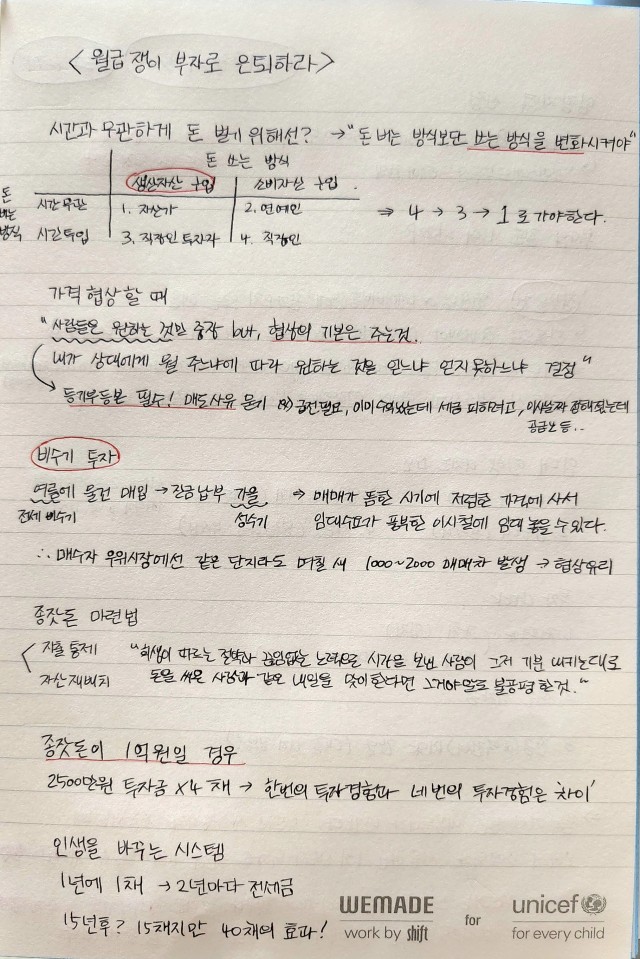 <월급쟁이 부자로 은퇴하라>
시간과 무관하게 돈 벌기 위해선? → "돈 버는 방식보단 쓰는 방식을 변화시켜야"
돈 쓰는 방식
생산자산 구입 소비자산 구입
돈 버는 방식
시간무관 1. 자산가 2. 연예인
시간투입 3. 직장인 투자자 4. 직장인
⇒ 4 → 3 → 1로 가야한다.
가격 협상할 때
"사람들은 원하는 것만 중장 but, 협상의 기본은 주는것.
내가 상대에게 뭘 주느냐에 따라 원하는 것을 얻느냐 얻지못하느냐 결정"
등기부등본 필수! 매도사유 묻기 예) 급전필요, 이미 수익났는데 세금 피하려고, 이사날짜 정해졌는데
잔금 등..
비수기 투자
여름에 물건 매입 → 잔금납부 가을 ⇒ 매매가 뜸한 시기에 저렴한 가격에 사서
전세 비수기 성수기 임대수요가 풍부한 이시철에 임대 놓을 수 있다.
∴ 매수자 우위시장에선 같은 단지라도 며칠 새 1000~2000 매매차 발생 → 협상유리
종잣돈 마련법
지출 통제 "희생이 따르는 절약과 끊임없는 노력으로 시간을 보낸 사람이 그저 기분 내키는대로
자산 재배치 돈을 써온 사람과 같은 내일을 맞이한다면 그거야 말로 불공평한 것."
종잣돈이 1억원일 경우
2500만원 투자금 × 4채 → 한번의 투자경험과 네번의 투자경험은 차이'
인생을 바꾸는 시스템
1년에 1채 → 2년마다 전세금
15년후? 15채지만 40채의 효과!
WEMADE
work by shift
for
unicef
for every child